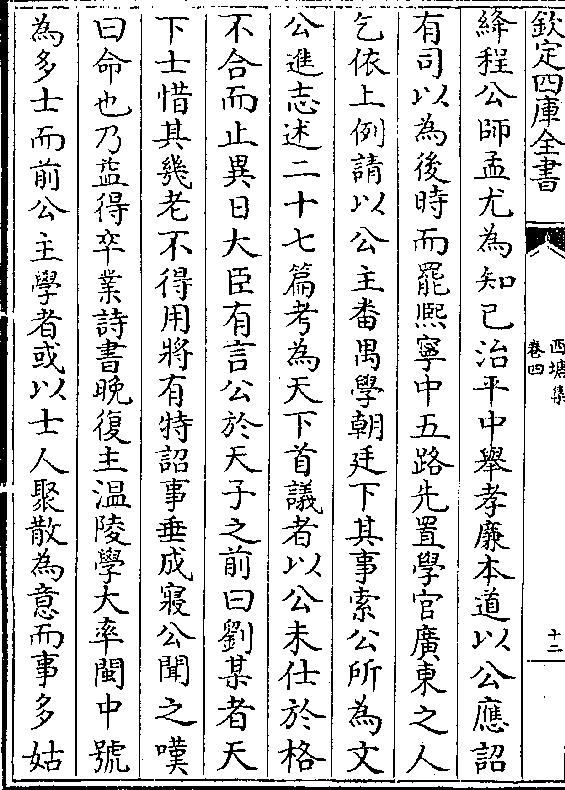 欽定四庫全書
西塘集
卷四
十二
絳程公師孟尤為知己治平中舉孝廉本道以公應詔
有司以為後時而罷熙寧中五路先置學官廣東之人
乞依上例請以公主畨禺學朝廷下其事索公所為文
公進志述二十七篇考為天下首議者以公未仕於格
不合而止異日大臣有言公於天子之前曰劉某者天
下士惜其幾老不得用將有特詔事垂成寢公聞之嘆
曰命也乃益得卒業詩書晚復主温陵學大率閩中號
為多士而前公主學者或以士人聚散為意而事多姑